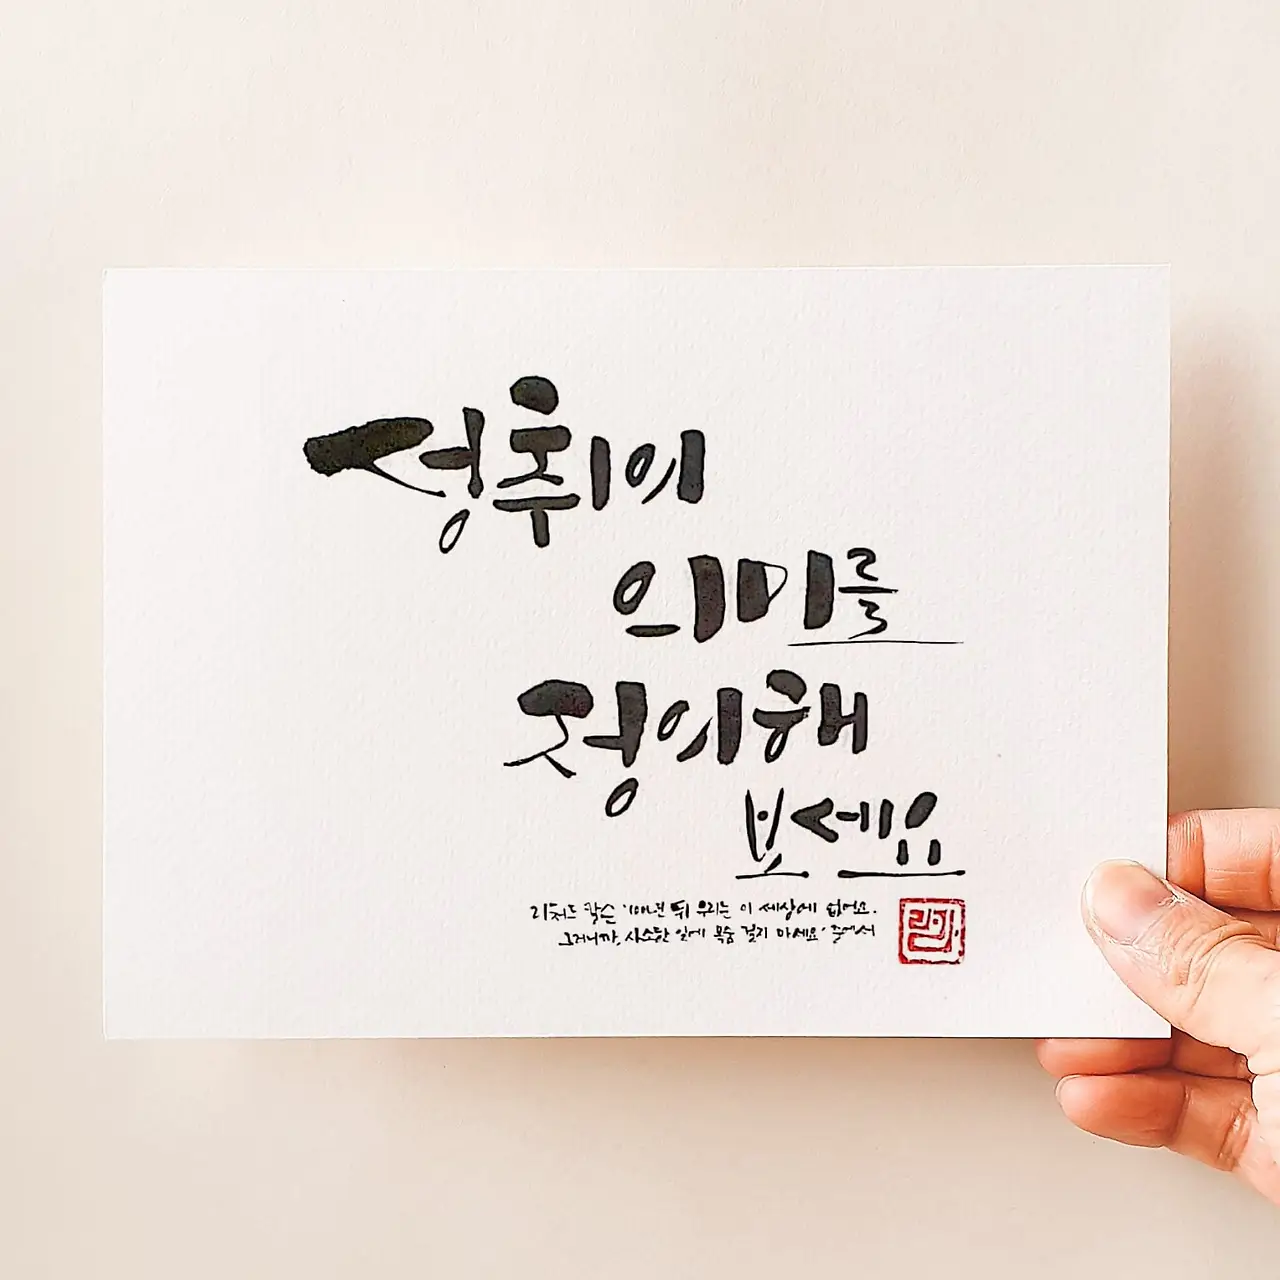 성취의
의미를
정의해
보세요
리처드 칼슨 '100년 뒤 우리는 이 세상에 없어요.
그러니까, 사소한 일에 목숨 걸지 마세요' 중에서